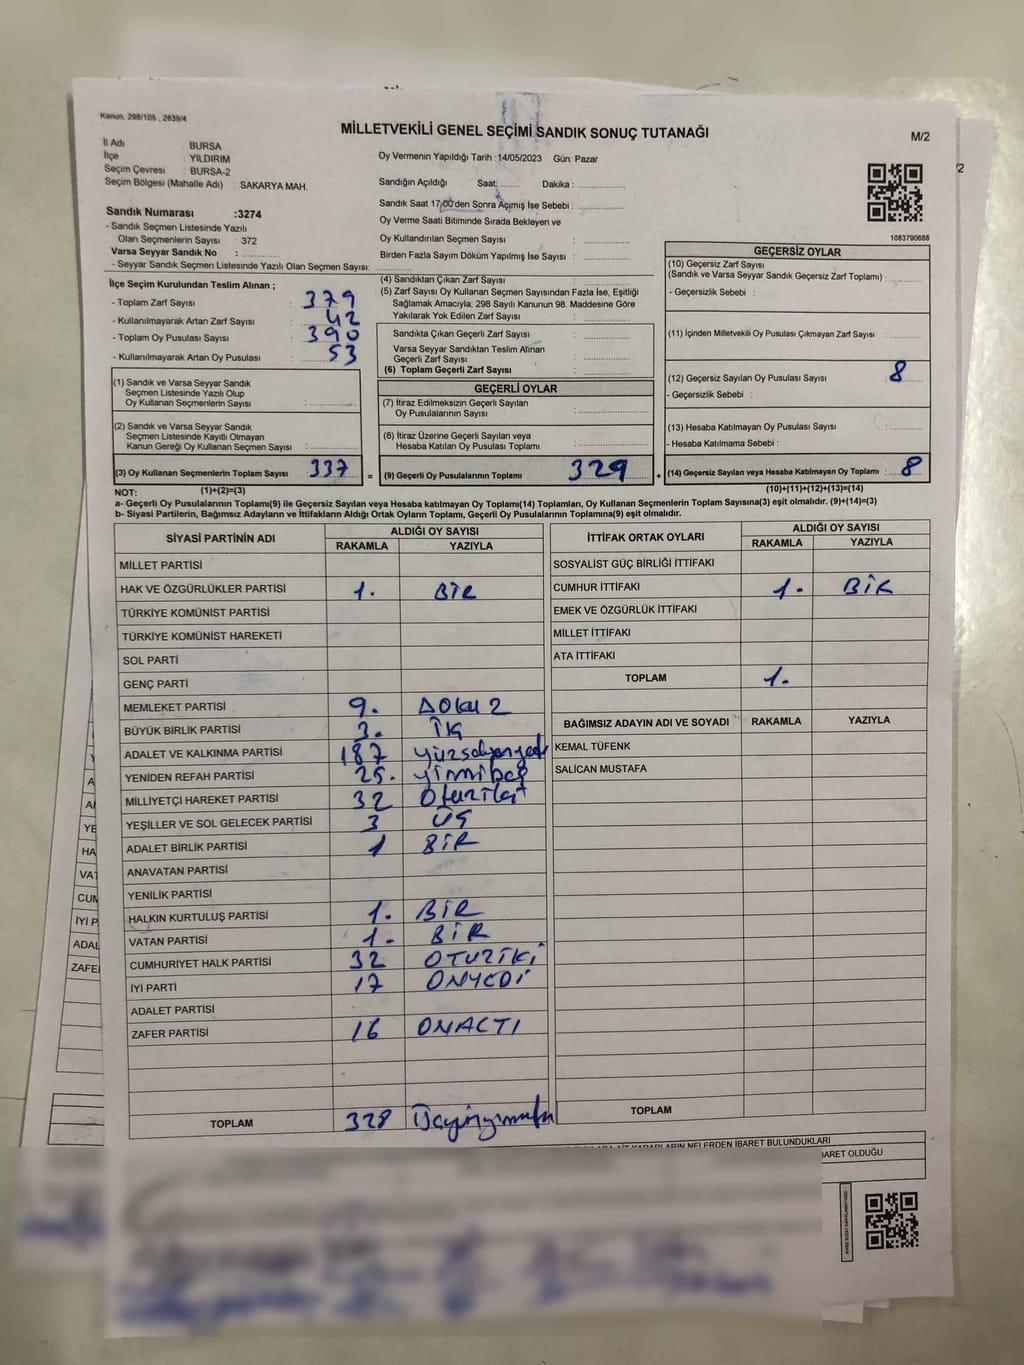 Kanun: 298/105 , 2839/4
MİLLETVEKİLİ GENEL SEÇİMİ SANDIK SONUÇ TUTANAĞI
M/2
İl Adı : BURSA
İlçe : YILDIRIM
Seçim Çevresi : BURSA-2
Seçim Bölgesi (Mahalle Adı) : SAKARYA MAH.
Sandık Numarası :3274
- Sandık Seçmen Listesinde Yazılı
Olan Seçmenlerin Sayısı : 372
Varsa Seyyar Sandık No :
- Seyyar Sandık Seçmen Listesinde Yazılı Olan Seçmen Sayısı:
Oy Vermenin Yapıldığı Tarih :14/05/2023 Gün: Pazar
Sandığın Açıldığı Saat: Dakika :
Sandık Saat 17:00'den Sonra Açmış İse Sebebi :
Oy Verme Saati Bitiminde Sırada Bekleyen ve
Oy Kullandırılan Seçmen Sayısı :
Birden Fazla Sayım Döküm Yapılmış İse Sayısı :
1083790688
İlçe Seçim Kurulundan Teslim Alınan ;
- Toplam Zarf Sayısı : 379
- Kullanılmayarak Artan Zarf Sayısı : 42
- Toplam Oy Pusulası Sayısı : 390
- Kullanılmayarak Artan Oy Pusulası : 53
(1) Sandık ve Varsa Seyyar Sandık
Seçmen Listesinde Yazılı Olup
Oy Kullanan Seçmenlerin Sayısı :
(2) Sandık ve Varsa Seyyar Sandık
Seçmen Listesinde Kayıtlı Olmayan
Kanun Gereği Oy Kullanan Seçmen Sayısı :
(3) Oy Kullanan Seçmenlerin Toplam Sayısı : 337 =
(4) Sandıktan Çıkan Zarf Sayısı :
(5) Zarf Sayısı Oy Kullanan Seçmen Sayısından Fazla İse, Eşitliği
Sağlamak Amacıyla; 298 Sayılı Kanunun 98. Maddesine Göre
Yakılarak Yok Edilen Zarf Sayısı :
Sandıkta Çıkan Geçerli Zarf Sayısı :
Varsa Seyyar Sandıktan Teslim Alınan
Geçerli Zarf Sayısı :
(6) Toplam Geçerli Zarf Sayısı :
GEÇERLİ OYLAR
(7) İtiraz Edilmeksizin Geçerli Sayılan
Oy Pusulalarının Sayısı :
(8) İtiraz Üzerine Geçerli Sayılan veya
Hesaba Katılan Oy Pusulası Toplamı :
(9) Geçerli Oy Pusulalarının Toplamı : 329 +
GEÇERSİZ OYLAR
(10) Geçersiz Zarf Sayısı
(Sandık ve Varsa Seyyar Sandık Geçersiz Zarf Toplamı) :
- Geçersizlik Sebebi :
(11) İçinden Milletvekili Oy Pusulası Çıkmayan Zarf Sayısı :
(12) Geçersiz Sayılan Oy Pusulası Sayısı : 8
- Geçersizlik Sebebi :
(13) Hesaba Katılmayan Oy Pusulası Sayısı :
- Hesaba Katılmama Sebebi :
(14) Geçersiz Sayılan veya Hesaba Katılmayan Oy Toplamı : 8
NOT: (1)+(2)=(3) (10)+(11)+(12)+(13)=(14)
a- Geçerli Oy Pusulalarının Toplamı(9) ile Geçersiz Sayılan veya Hesaba katılmayan Oy Toplamı(14) Toplamları, Oy Kullanan Seçmenlerin Toplam Sayısına(3) eşit olmalıdır. (9)+(14)=(3)
b- Siyasi Partilerin, Bağımsız Adayların ve İttifakların Aldığı Ortak Oyların Toplamı, Geçerli Oy Pusulalarının Toplamına(9) eşit olmalıdır.
SİYASİ PARTİNİN ADI ALDIĞI OY SAYISI
RAKAMLA YAZIYLA
MİLLET PARTİSİ
HAK VE ÖZGÜRLÜKLER PARTİSİ 1. BİR
TÜRKİYE KOMÜNİST PARTİSİ
TÜRKİYE KOMÜNİST HAREKETİ
SOL PARTİ
GENÇ PARTİ
MEMLEKET PARTİSİ 9. DOKUZ
BÜYÜK BİRLİK PARTİSİ 3.
ADALET VE KALKINMA PARTİSİ 187 yüzseksenyedi
YENİDEN REFAH PARTİSİ 25. yirmibeş
MİLLİYETÇİ HAREKET PARTİSİ 32 Otuziki
YEŞİLLER VE SOL GELECEK PARTİSİ 3 ÜÇ
ADALET BİRLİK PARTİSİ 1 BİR
ANAVATAN PARTİSİ
YENİLİK PARTİSİ
HALKIN KURTULUŞ PARTİSİ 1. BİR
VATAN PARTİSİ 1. BİR
CUMHURİYET HALK PARTİSİ 32 OTUZİKİ
İYİ PARTİ 17 ONYEDİ
ADALET PARTİSİ
ZAFER PARTİSİ 16 ONALTI
TOPLAM 328
İTTİFAK ORTAK OYLARI ALDIĞI OY SAYISI
RAKAMLA YAZIYLA
SOSYALİST GÜÇ BİRLİĞİ İTTİFAKI
CUMHUR İTTİFAKI 1. BİR
EMEK VE ÖZGÜRLÜK İTTİFAKI
MİLLET İTTİFAKI
ATA İTTİFAKI
TOPLAM 1.
BAĞIMSIZ ADAYIN ADI VE SOYADI RAKAMLA YAZIYLA
KEMAL TÜFENK
SALİCAN MUSTAFA
TOPLAM
NELERDEN İBARET BULUNDUKLARI
İBARET OLDUĞU